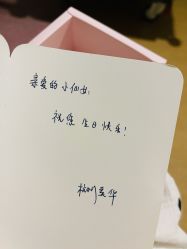 亲爱的小仙女：
祝您生日快乐！
杭州美华